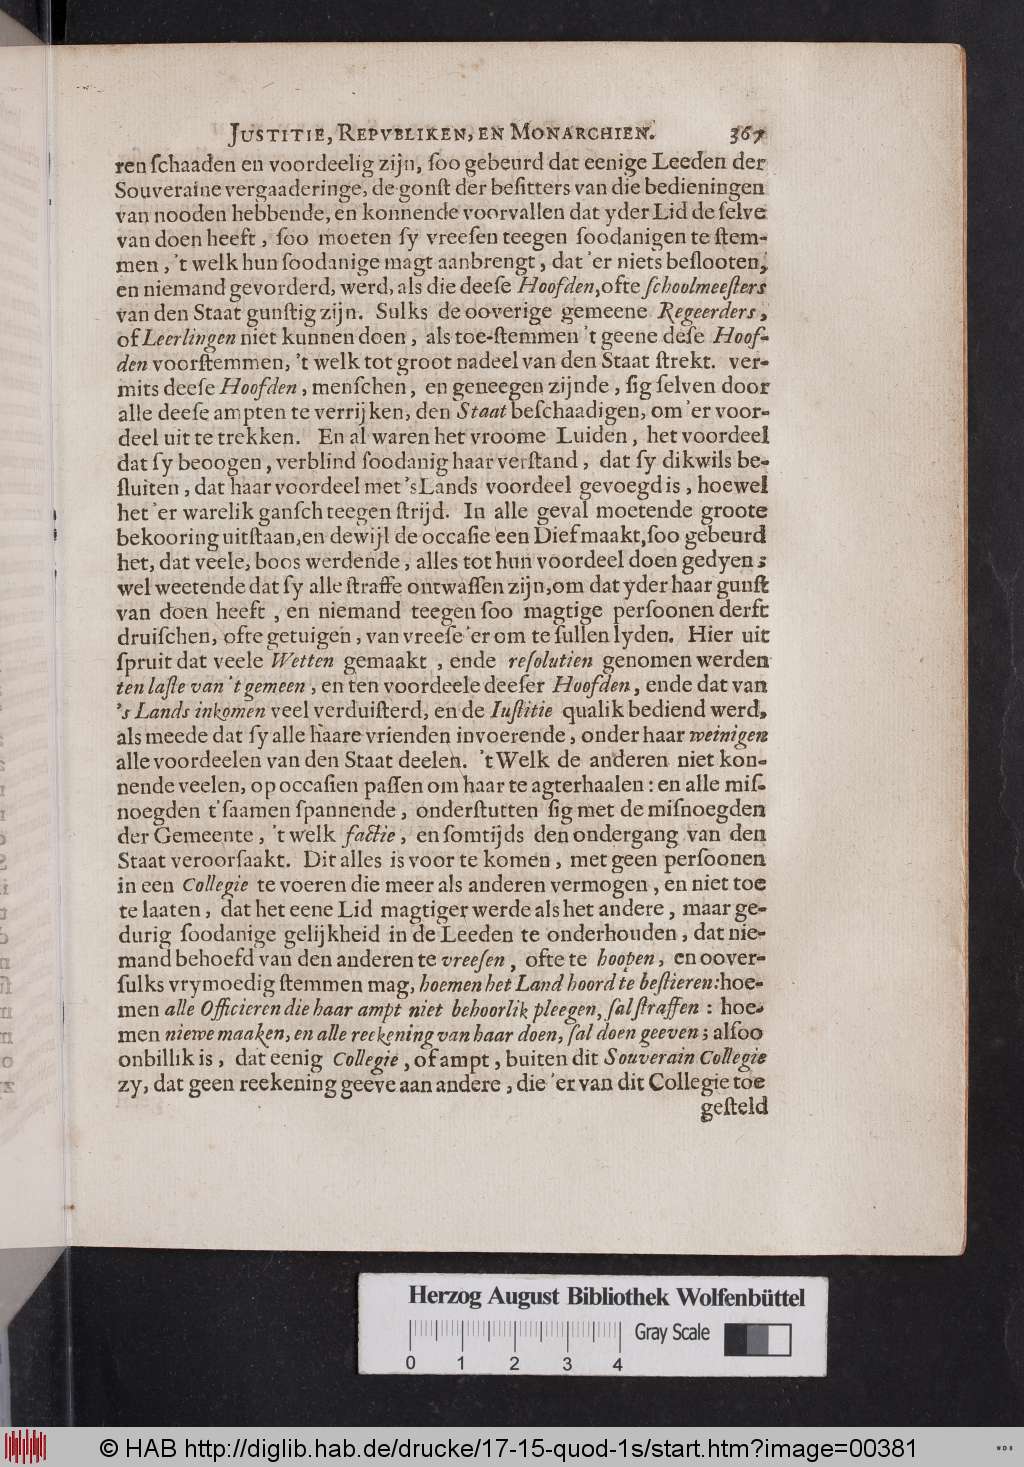 JUSTITIE, REPVBLIKEN, EN MONARCHIEN. 367
ren ſchaaden en voordeelig zijn, ſoo gebeurd dat eenige Leeden der
Souveraine vergaaderinge, de gonſt der beſitters van die bedieningen
van nooden hebbende, en konnende voorvallen dat yder Lid de ſelve
van doen heeft, ſoo moeten ſy vreeſen teegen ſoodanigen te ſtem-
men, 't welk hun ſoodanige magt aanbrengt, dat 'er niets beſlooten,
en niemand gevorderd, werd, als die deeſe Hoofden, ofte ſchoolmeeſters
van den Staat gunſtig zijn. Sulks de ooverige gemeene Regeerders,
of Leerlingen niet kunnen doen, als toe-ſtemmen 't geene deſe Hoof-
den voorſtemmen, 't welk tot groot nadeel van den Staat ſtrekt. ver-
mits deeſe Hoofden, menſchen, en geneegen zijnde, ſig ſelven door
alle deeſe ampten te verrijken, den Staat beſchaadigen, om 'er voor-
deel uit te trekken. En al waren het vroome Luiden, het voordeel
dat ſy beoogen, verblind ſoodanig haar verſtand, dat ſy dikwils be-
ſluiten, dat haar voordeel met 's Lands voordeel gevoegd is, hoewel
het 'er warelik ganſch teegen ſtrijd. In alle geval moetende groote
bekooring uitſtaan, en dewijl de occaſie een Dief maakt, ſoo gebeurd
het, dat veele, boos werdende, alles tot hun voordeel doen gedyen;
wel weetende dat ſy alle ſtraffe ontwaſſen zijn, om dat yder haar gunſt
van doen heeft, en niemand teegen ſoo magtige perſoonen derft
druiſchen, ofte getuigen, van vreeſe 'er om te ſullen lyden. Hier uit
ſpruit dat veele Wetten gemaakt, ende reſolutien genomen werden
ten laſte van 't gemeen, en ten voordeele deeſer Hoofden, ende dat van
's Lands inkomen veel verduiſterd, en de Iuſtitie qualik bediend werd,
als meede dat ſy alle haare vrienden invoerende, onder haar weinigen
alle voordeelen van den Staat deelen. 't Welk de anderen niet kon-
nende veelen, op occaſien paſſen om haar te agterhaalen: en alle miſ-
noegden t'ſaamen ſpannende, onderſtutten ſig met de miſnoegden
der Gemeente, 't welk factie, en ſomtijds den ondergang van den
Staat veroorſaakt. Dit alles is voor te komen, met geen perſoonen
in een Collegie te voeren die meer als anderen vermogen, en niet toe
te laaten, dat het eene Lid magtiger werde als het andere, maar ge-
durig ſoodanige gelijkheid in de Leeden te onderhouden, dat nie-
mand behoefd van den anderen te vreeſen, ofte te hoopen, en oover-
ſulks vrymoedig ſtemmen mag, hoemen het Land hoord te beſtieren: hoe-
men alle Officieren die haar ampt niet behoorlik pleegen, ſal ſtraffen: hoe-
men niewe maaken, en alle reekening van haar doen, ſal doen geeven; alſoo
onbillik is, dat eenig Collegie, of ampt, buiten dit Souverain Collegie
zy, dat geen reekening geeve aan andere, die 'er van dit Collegie toe
geſteld
Herzog August Bibliothek Wolfenbüttel
Gray Scale
0 1 2 3 4
© HAB http://diglib.hab.de/drucke/17-15-quod-1s/start.htm?image=00381